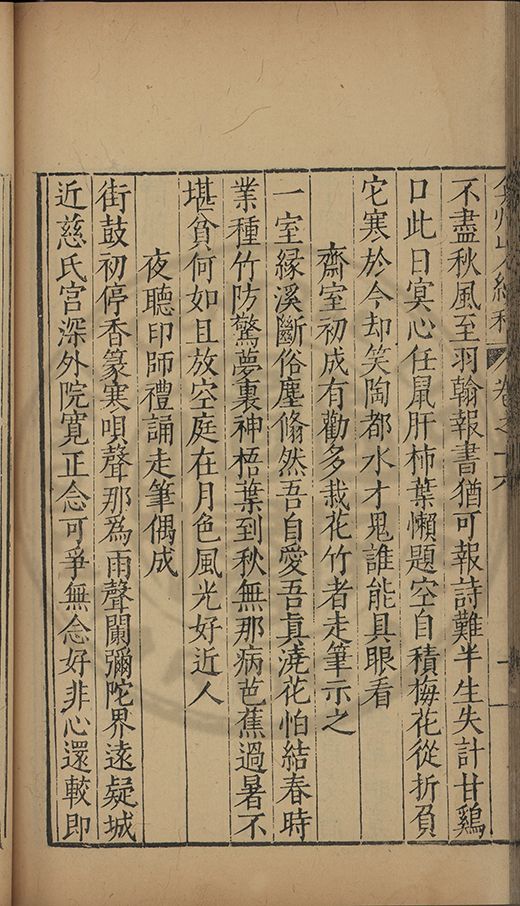 卷之十六
不盡秋風至羽翰報書猶可報詩難半生失計甘鷄
口此日冥心任鼠肝柿葉懶題空自積梅花從折負
它寒於今却笑陶都水才鬼誰能具眼看
齋室初成有勸多栽花竹者走筆示之
一室緣溪斷俗塵翛然吾自愛吾眞澆花怕結春時
業種竹防驚夢裏神梧葉到秋無那病芭蕉過暑不
堪貧何如且放空庭在月色風光好近人
夜聽印師禮誦走筆偶成
街鼓初停香篆寒唄聲那為雨聲闌彌陀界遠疑城
近慈氏宮深外院寬正念可爭無念好非心還較即